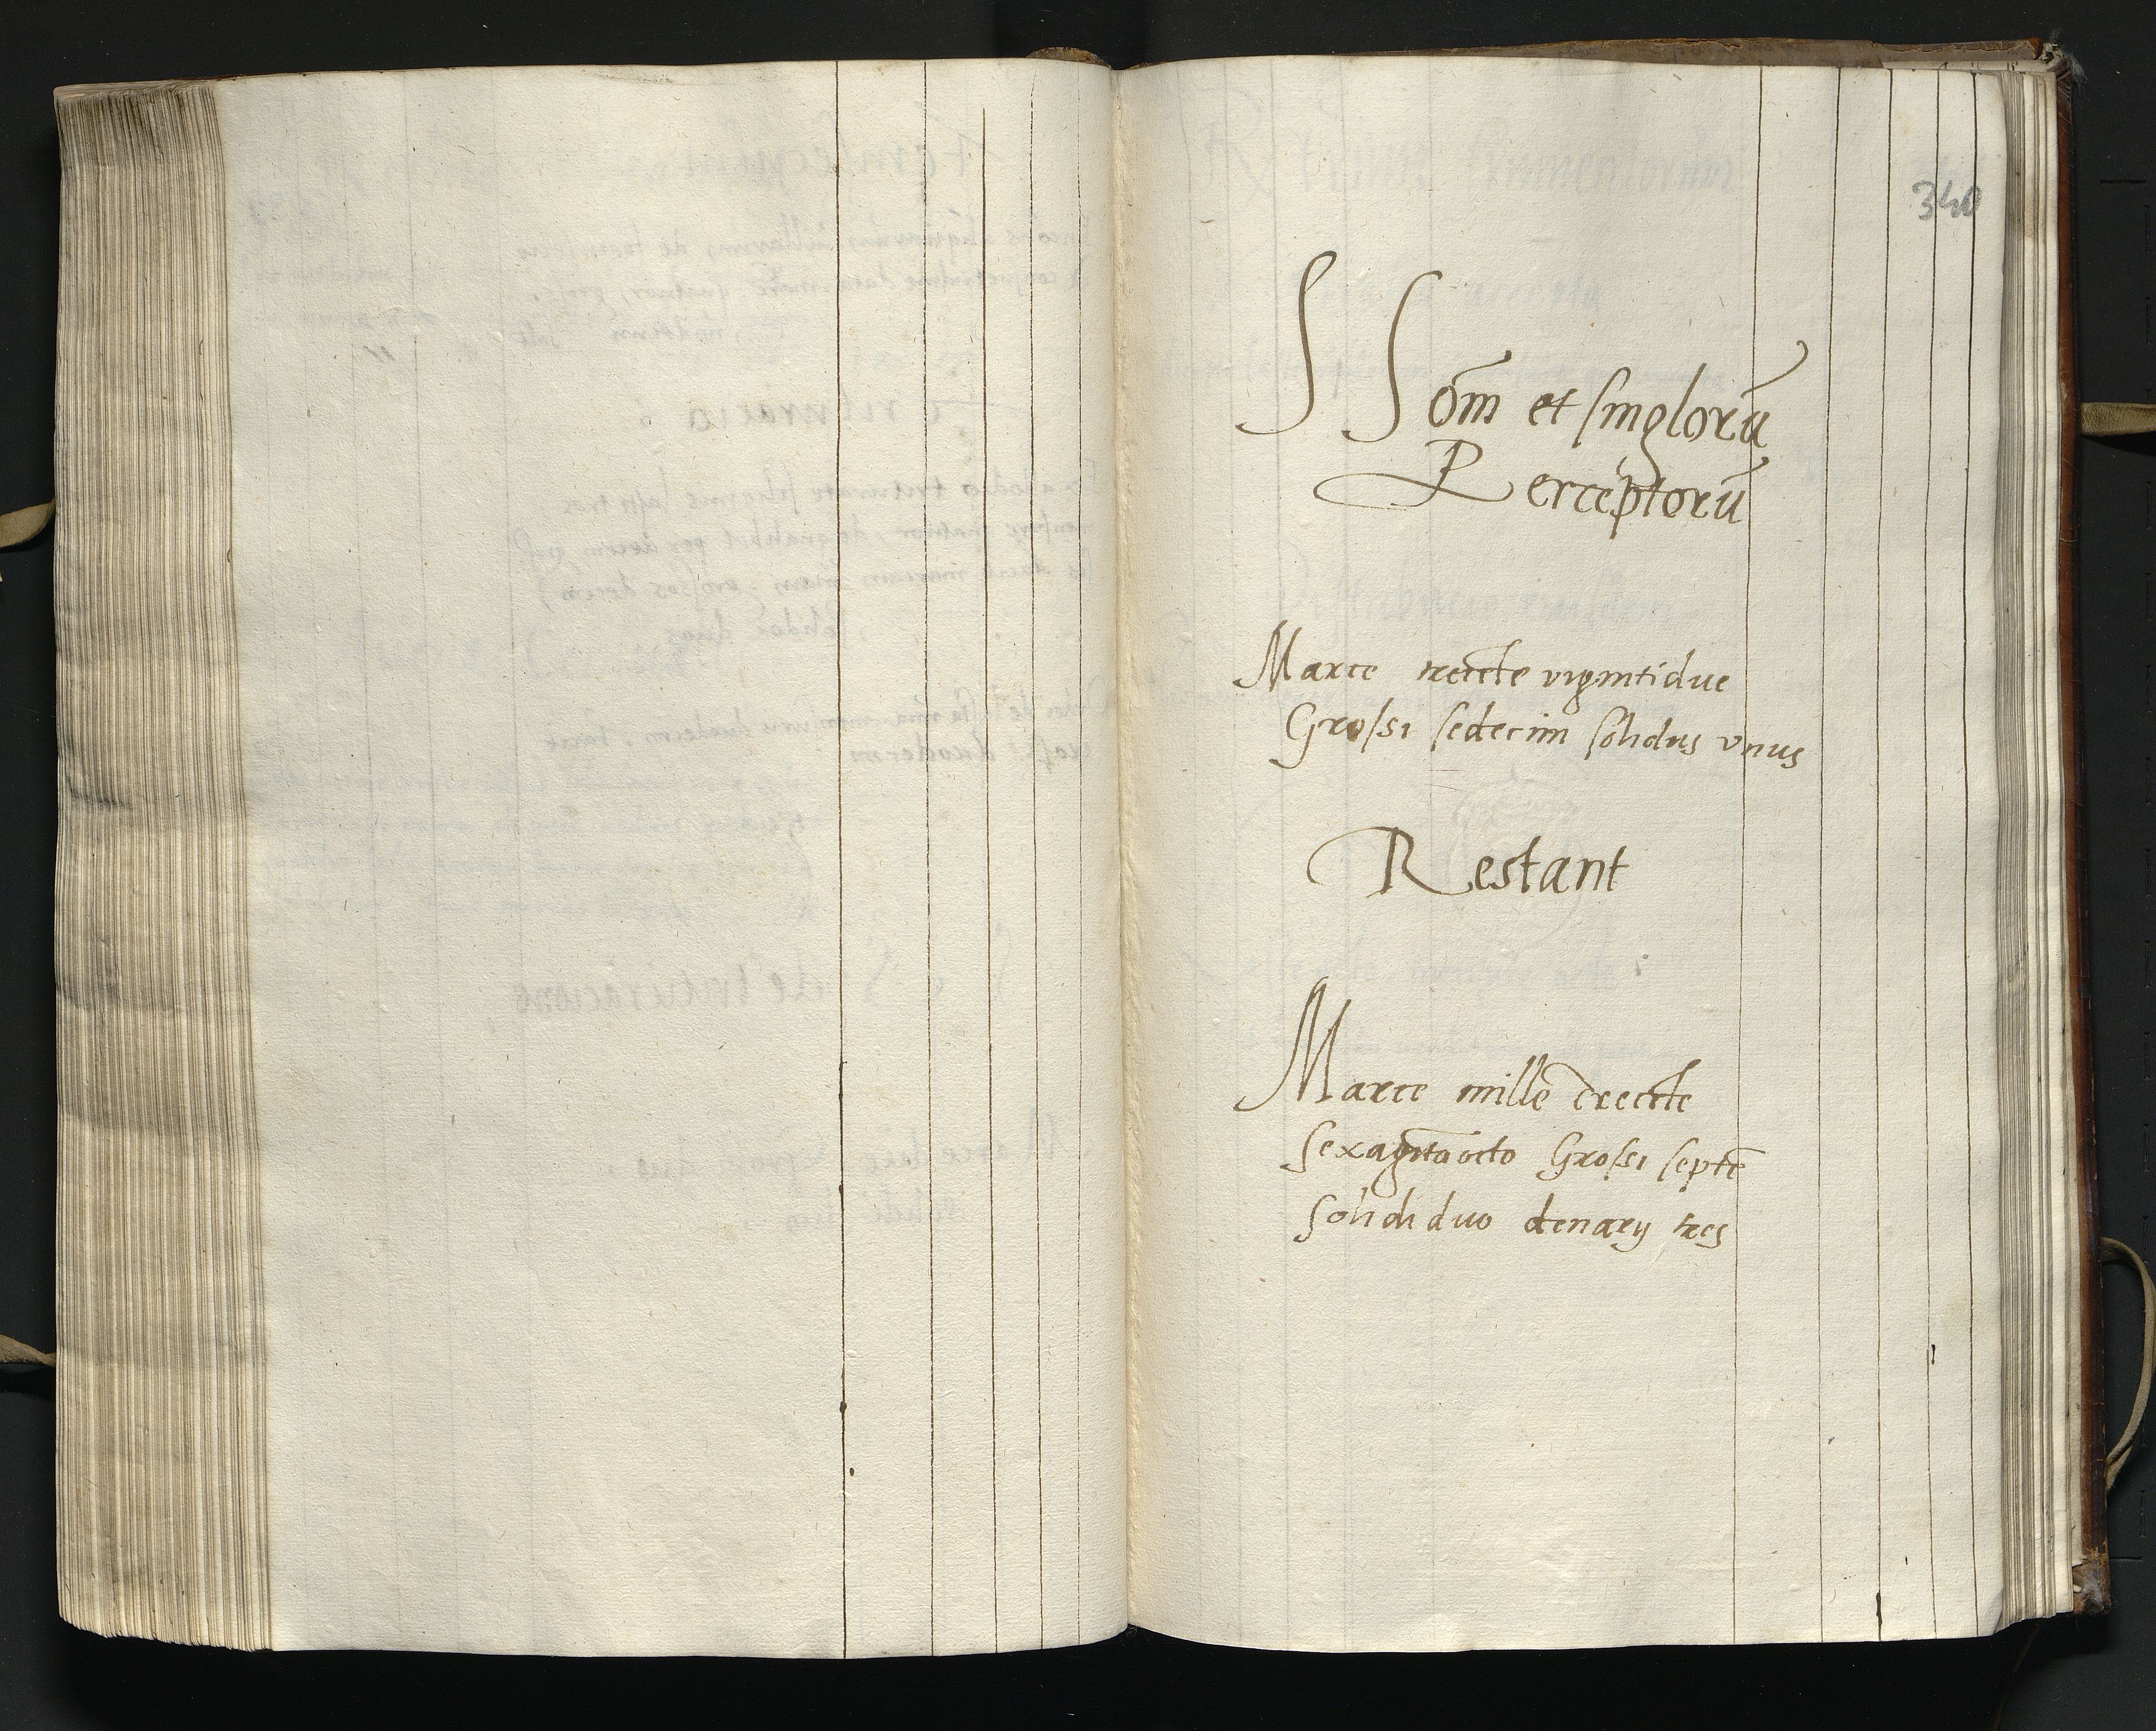 340
S S om̄ et singlorū
Perceptorū
Marce trecēte vigintidue
Grossi sedecim solidus vnus
Restant
Marce mille trecēte
sexagītaocto Grossi septē
solidi duo denarij tres